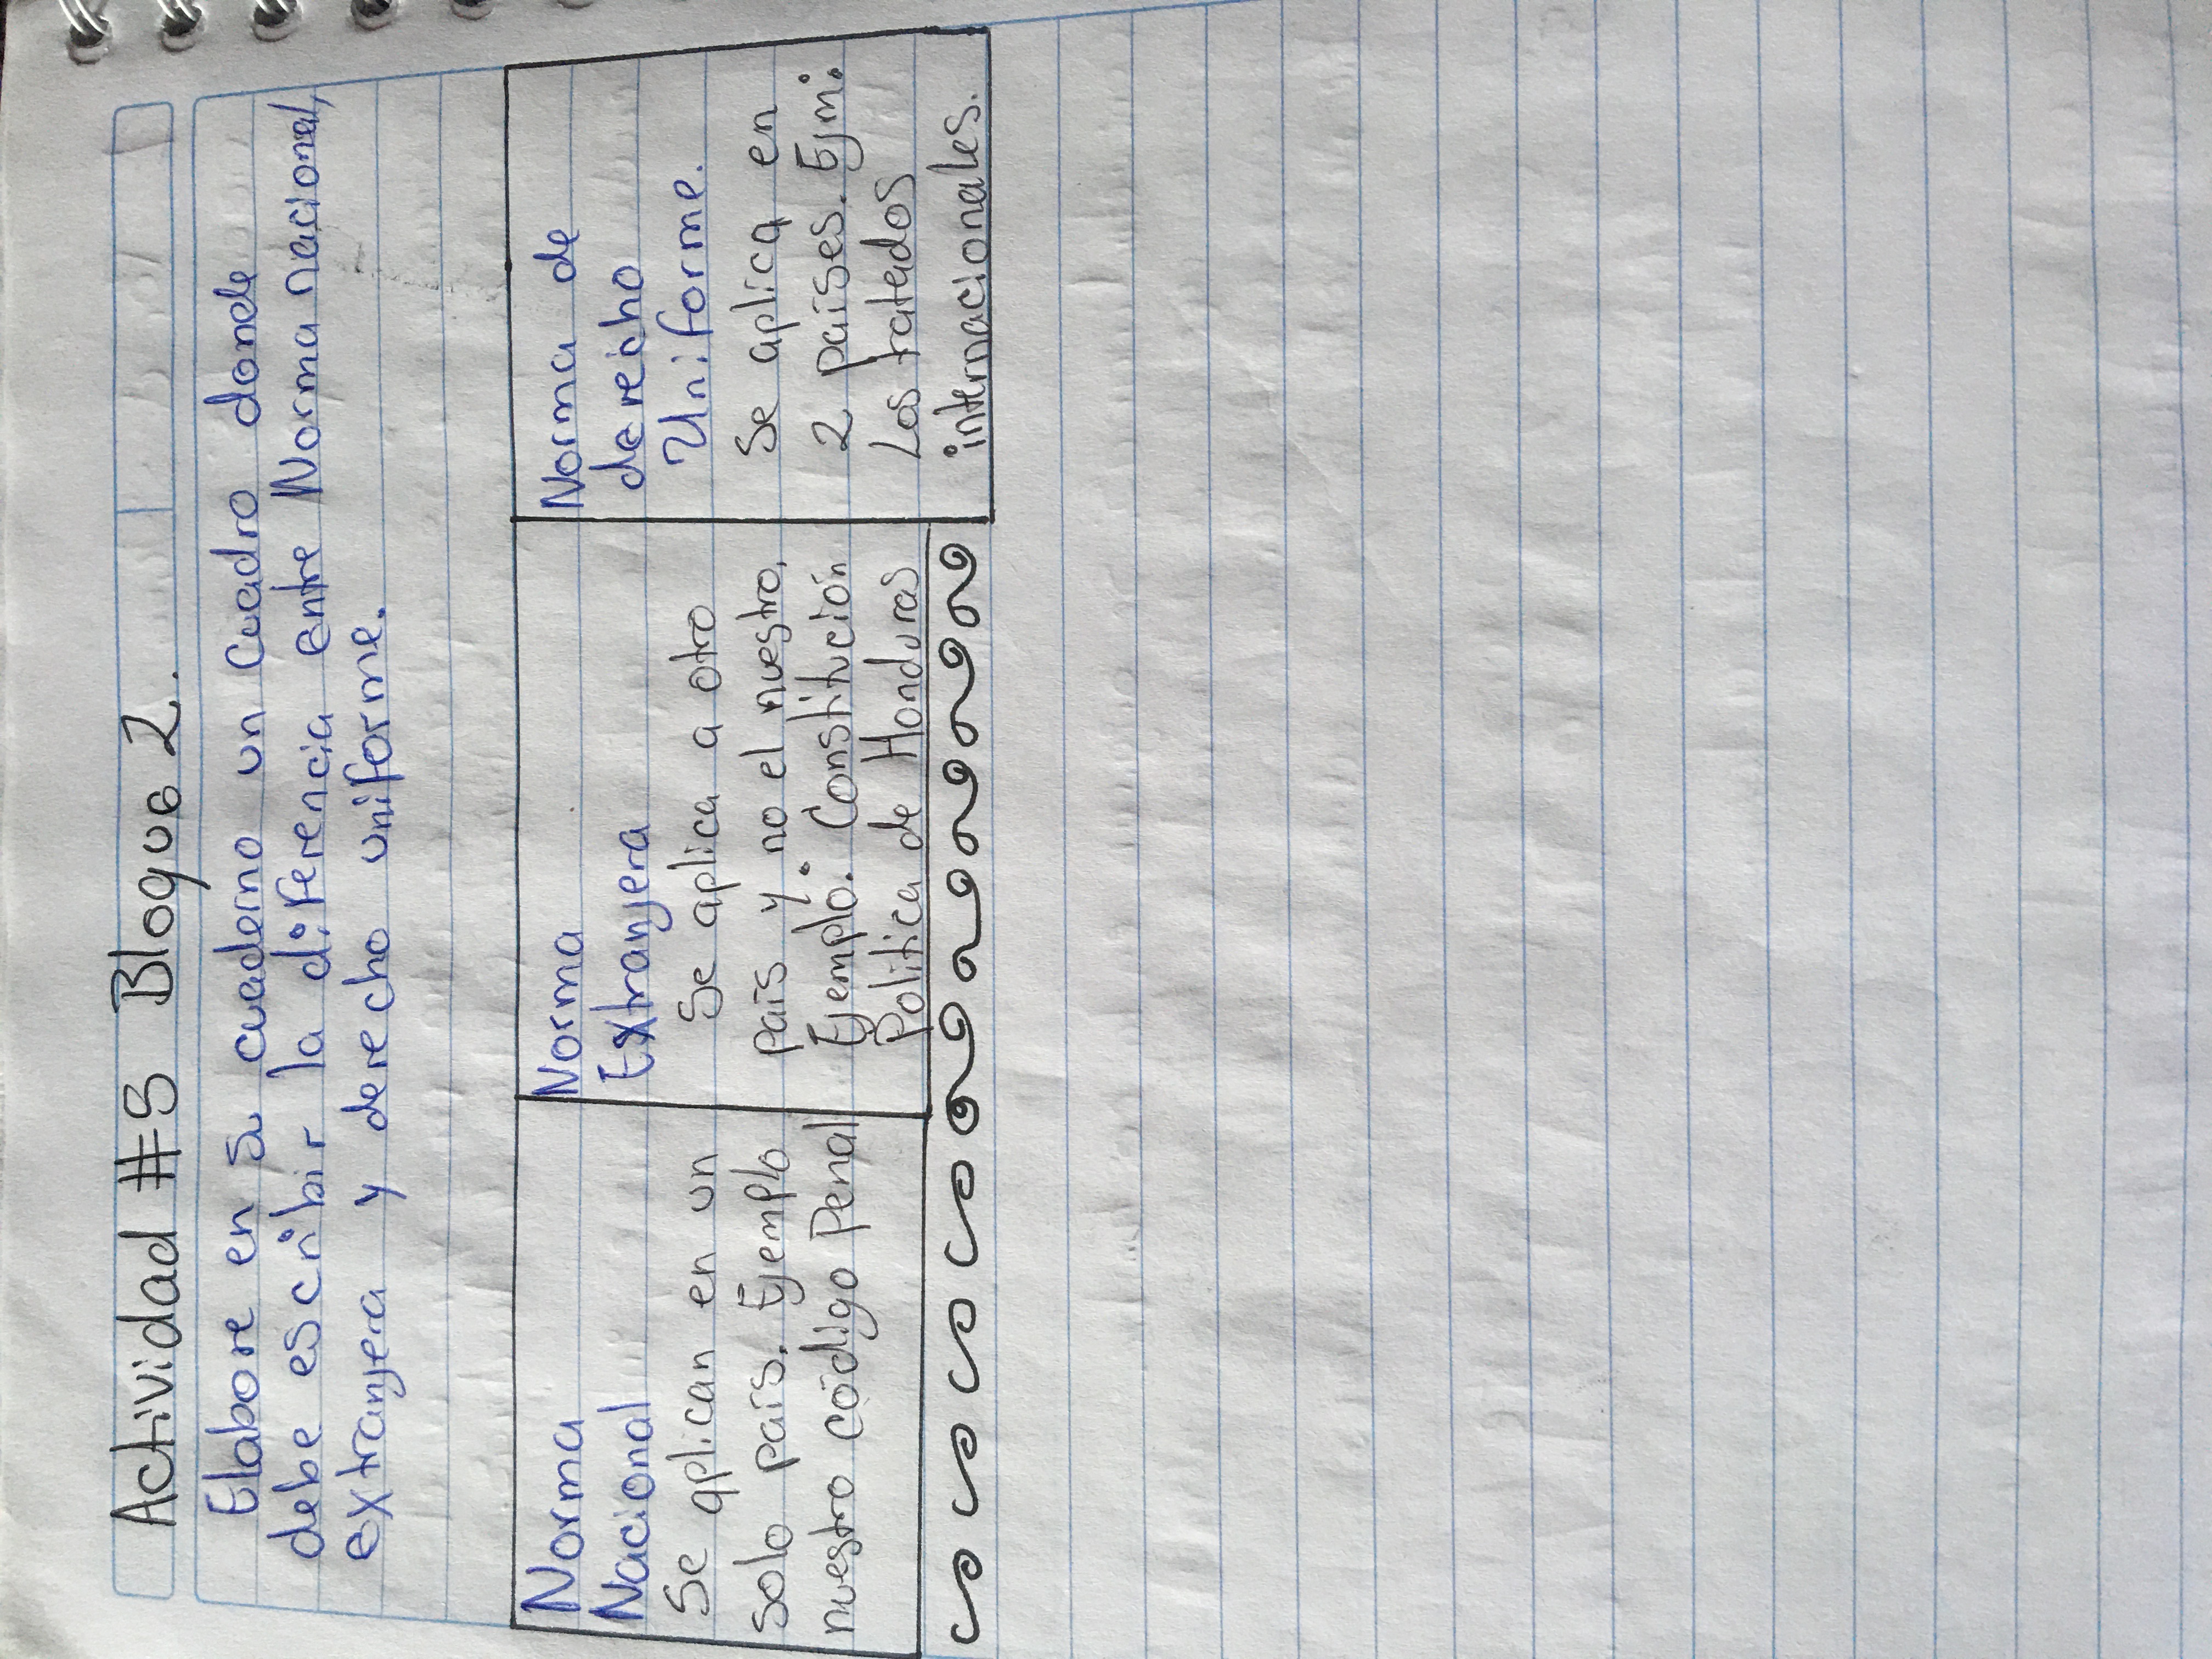 Actividad #5 Bloque 2.
Elabore en su cuaderno un cuadro donde
debe escribir la diferencia entre Norma nacional,
extranjera y derecho uniforme.
Norma
Nacional
Se aplican en un
solo país. Ejemplo
nuestro código Penal
Norma
Extranjera
Se aplica a otro
país y no el nuestro.
Ejemplo: Constitución
Política de Honduras
Norma de
derecho
Uniforme.
Se aplica en
2 países. Ejm:
Los tratados
internacionales.